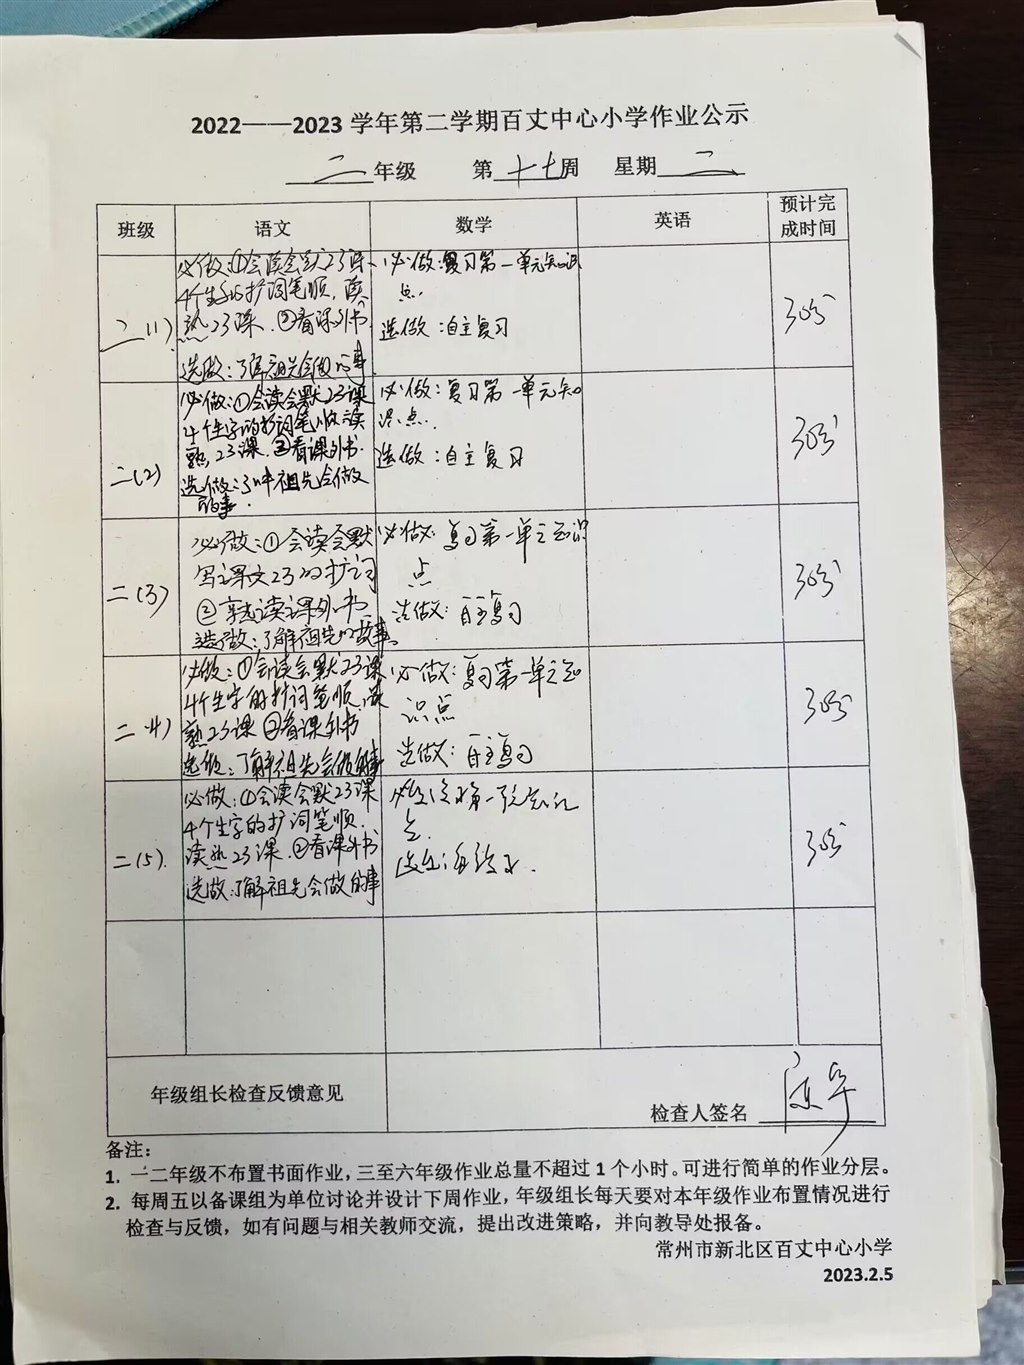 2022——2023 学年第二学期百丈中心小学作业公示
二 年级 第 十七 周 星期 二
班级 语文 数学 英语 预计完
成时间
二(1)
必做:①会读会默23课
4个生字的扩词笔顺,读
熟23课.②看课外书
选做:了解祖先会做的事
必做:复习第一单元知识
点.
选做:自主复习
30分
二(2)
必做:①会读会默23课
4个生字的扩词笔顺读
熟23课.②看课外书.
选做:了解祖先会做
的事.
必做:复习第一单元知
识点.
选做:自主复习
30分
二(3)
必做:①会读会默
写课文23的扩词
②读课外书
选做:了解祖先的故事.
必做:复习第一单元知识
点
选做:自主复习
30分
二(4)
必做:①会读会默23课
4个生字的扩词笔顺,读
熟23课②看课外书
选做:了解祖先会做的事
必做:复习第一单元知
识点
选做:自主复习
30分
二(5).
必做:①会读会默23课
4个生字的扩词笔顺.
读熟23课.②看课外书
选做:了解祖先会做的事
必做:复习第一单元知识
点.
选做:自主复习.
30分
年级组长检查反馈意见
检查人签名
备注:
1. 一二年级不布置书面作业,三至六年级作业总量不超过 1 个小时。可进行简单的作业分层。
2. 每周五以备课组为单位讨论并设计下周作业,年级组长每天要对本年级作业布置情况进行
检查与反馈,如有问题与相关教师交流,提出改进策略,并向教导处报备。
常州市新北区百丈中心小学
2023.2.5